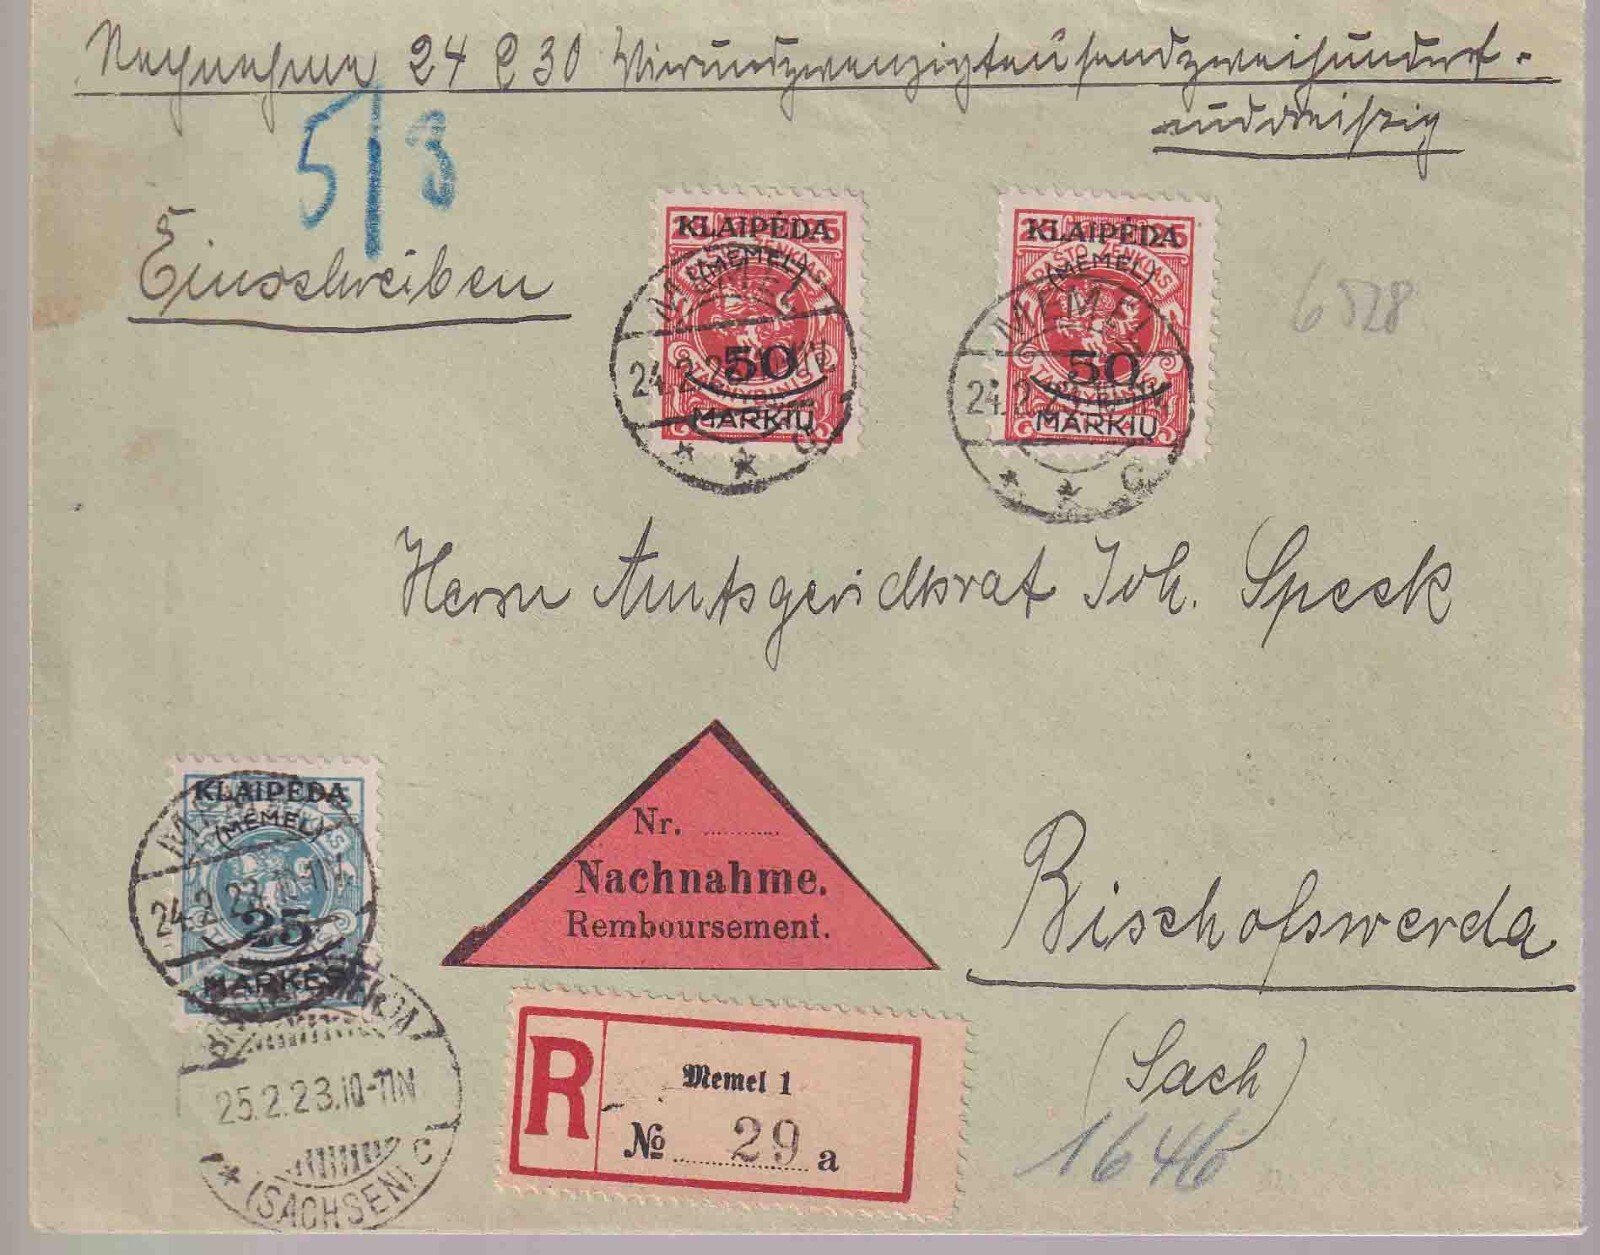 Nachnahme 24 230 Vierundzwanzigtausendzweihundert-
unddreißig
5/3
Einschreiben
KLAIPĖDA
(MEMEL)
50
MARKIŲ
MEMEL
24.2.23
C
KLAIPĖDA
(MEMEL)
50
MARKIŲ
MEMEL
24.2.23
C
Herrn Amtsgerichtsrat Joh. Speck
KLAIPĖDA
(MEMEL)
25
MARKĖS
24.2.23.10-11
Nr.
Nachnahme.
Remboursement.
Bischofswerda
(Sach)
25.2.23.10-11N
(SACHSEN) C
R
Memel 1
№ 29 a
1646